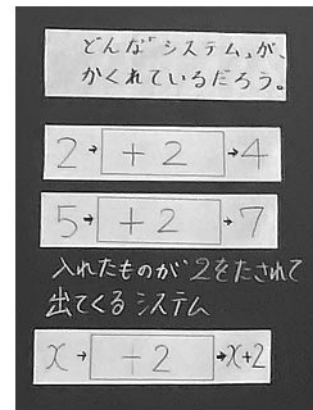 どんな"システム"が、
かくれているだろう。
2→ +2 →4
5→ +2 →7
入れたものが 2をたされて
出てくるシステム
x→ +2 →x+2